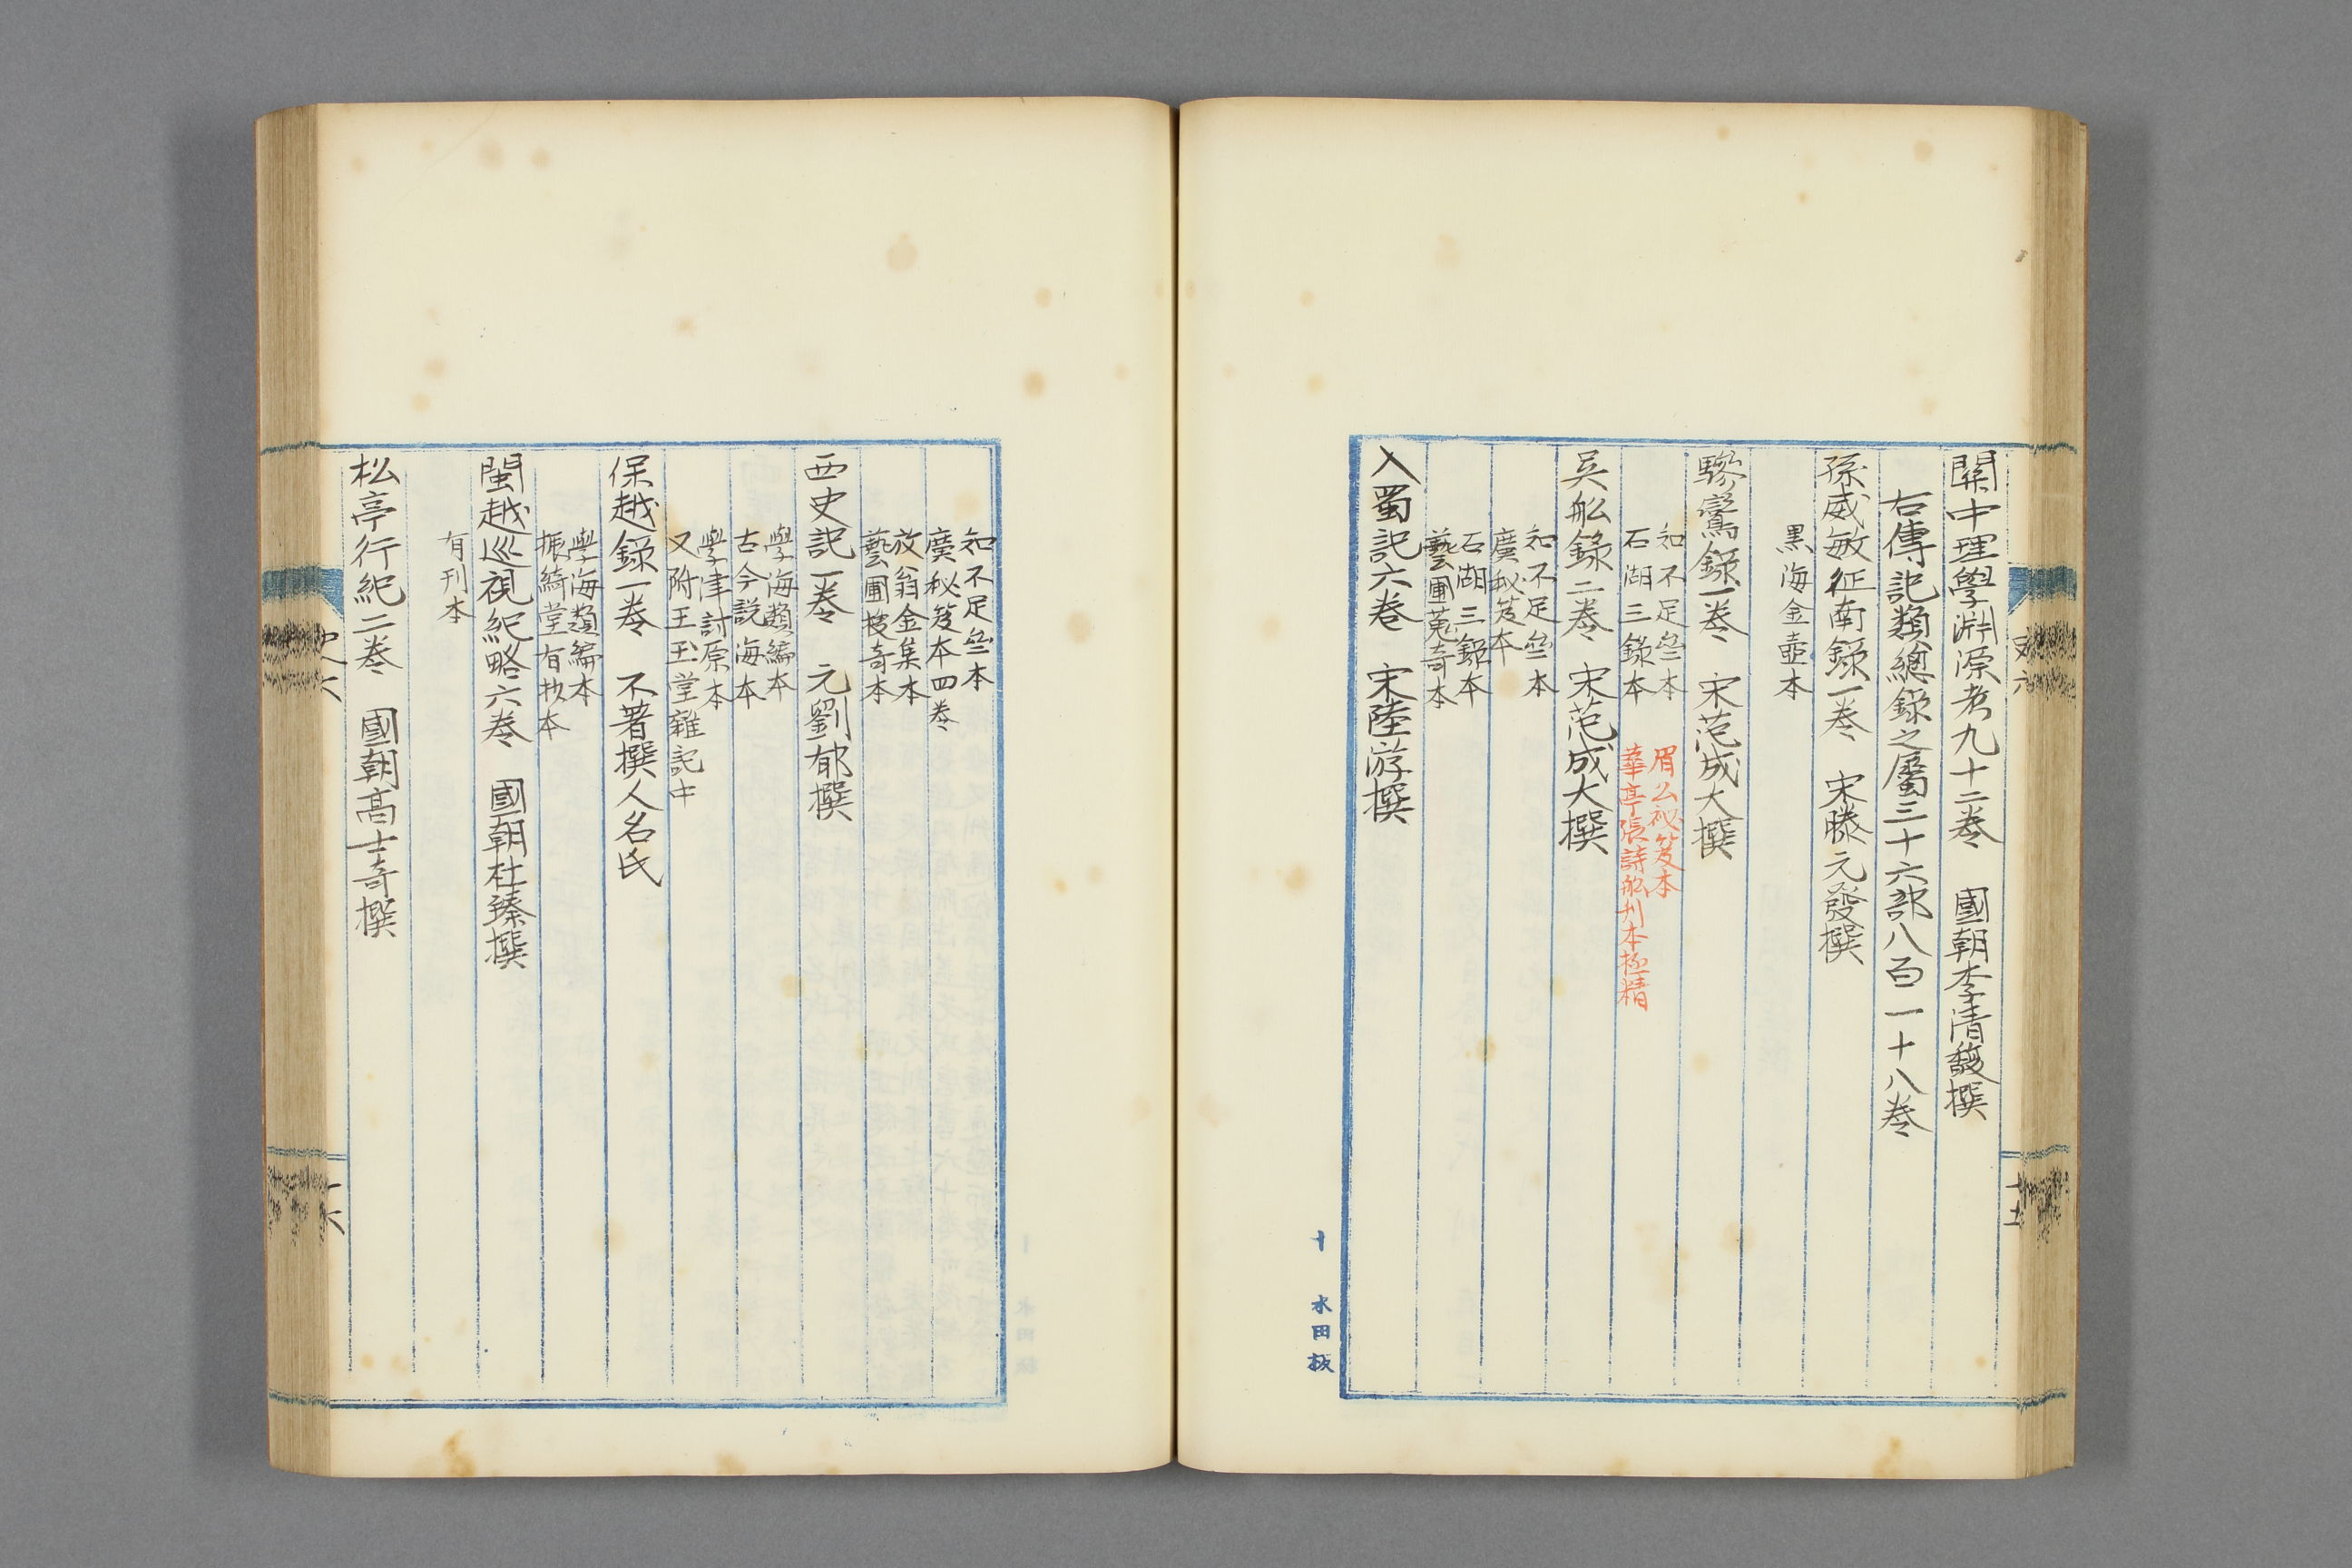 關中理學淵源考九十二卷　國朝李清馥撰
右傳記類總錄之屬三十六部八百一十八卷
孫威敏征南錄一卷　宋滕元發撰
黒海金壺本
驂鸞錄一卷　宋范成大撰
知不足叄本
石湖三錄本
眉公祕笈本
華亭張詩舩刊本極精
吳舩錄二卷　宋范成大撰
知不足叄本
廣秘笈本
石湖三錄本
藝圃蒐奇本
入蜀記六卷　宋陸游撰
史六
十五
十
水田板
知不足叄本
廣秘笈本四卷
放翁全集本
藝圃搜奇本
西史記一卷　元劉郁撰
學海類編本
古今説海本
學津討原本
又附王玉堂雜記中
保越錄一卷　不著撰人名氏
學海類編本
振綺堂有抄本
閩越巡視紀略六卷　國朝杜臻撰
有刊本
松亭行紀二卷　國朝高士奇撰
史六
十六